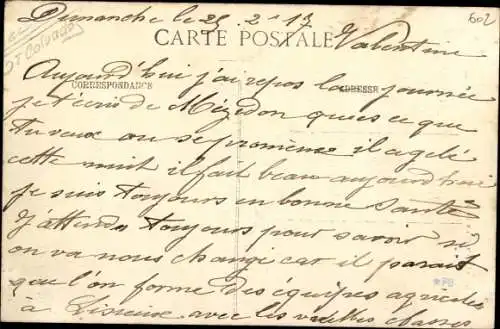 Dimanche le 25 2 - 17
602
CARTE POSTALE
Valentine
Calvados
Aujourd'hui j'ai repos la journée
CORRESPONDANCE
ADRESSE
je t'écris de Mézidon qu'es ce que
tu veux on se promène il a gelé
cette nuit il fait beau aujourd'hui
je suis toujours en bonne Santée
J'attends toujours pour savoir si
on va nous changé car il parait
que l'on forme des équipes agricoles
à Lisieux avec les vieilles classes